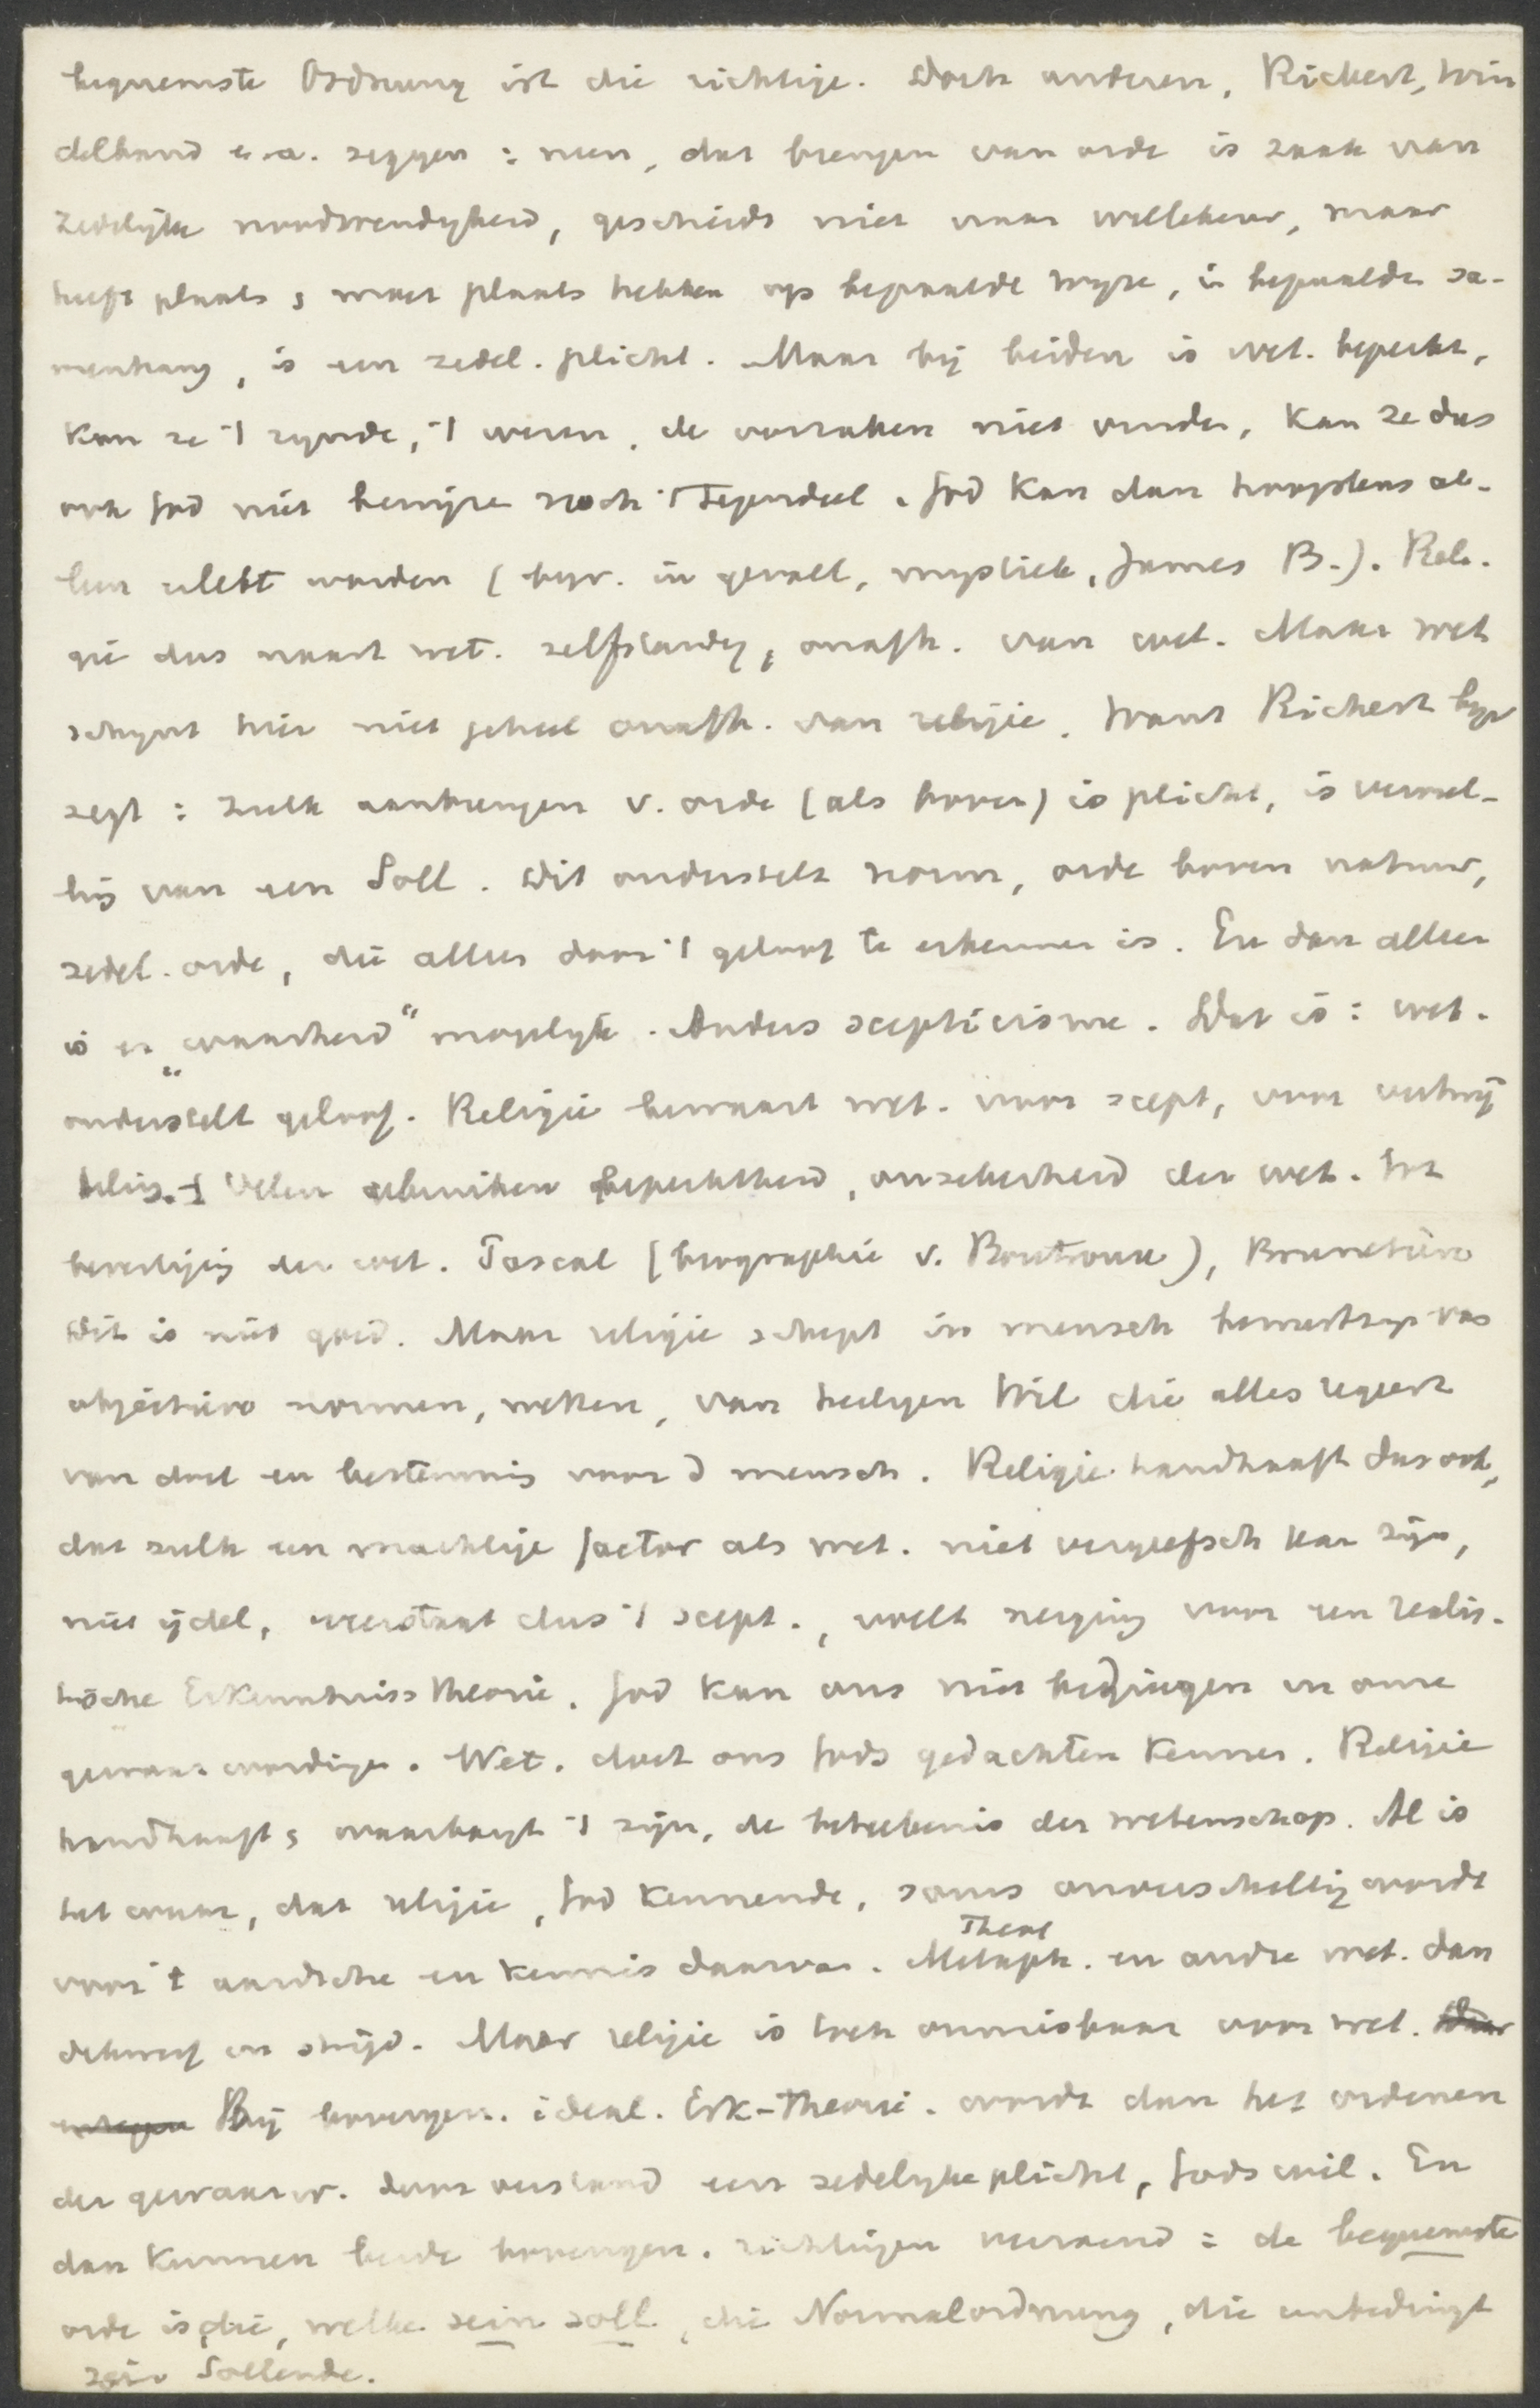 bequemste Ordnung ist die richtige. Doch anderen, Rickert, Win
delband e.a. zeggen : neen, dat brengen van orde is zaak van
zedelijke noodwendigheid, geschiedt niet naar willekeur, maar
heeft plaats, moet plaats hebben op bepaalde wijze, in bepaalden sa-
menhang, is een zedel. plicht. Maar bij beiden is wet. beperkt,
kan ze 't zijnde, 't wezen, de oorzaken niet vinden, kan ze dus
ook God niet bewijzen noch 't Tegendeel. God kan dan hoogstens al-
leen erlebt worden (bijv. in gevoel, mystiek, James B.). Reli-
gie dus naast wet. zelfstandig, onafh. van wet. Maar wet
schijnt hier niet geheel onafh. van religie. Want Rickert bijv
zegt : zulk aanbrengen v. orde (als boven) is plicht, is vervul-
ling van een Soll. Dit onderstelt norm, orde boven natuur,
zedel. orde, die alleen door 't geloof te erkennen is. En dan alleen
is er „waarheid“ mogelijk. Anders scepticisme. Dat is : wet.
onderstelt geloof. Religie bewaart wet. voor scept, voor vertwij
feling. Velen gebruiken beperktheid, onzekerheid der wet. tot
bevestiging der wet. Pascal (biographie v. Boutroux), Brunetière
Dit is niet goed. Maar religie schept in mensch bewustzijn van
objectieve normen, wetten, van heiligen Wil die alles regeert
van doel en bestemming voor d mensch. Religie handhaaft dus ook,
dat zulk een machtige factor als wet. niet vergeefsch kan zijn,
niet ijdel, weerstaat dus 't scept., wekt neiging voor een realis-
tische Erkenntniss theorie. God kan ons niet bedriegen in onze
gewaarwordingen. Wet. doet ons Gods gedachten kennen. Religie
handhaaft, waarborgt 't zijn, de beteekenis der wetenschap. Al is
het waar, dat religie, God kennende, soms onverschillig wordt
voor 't aardsche en kennis daarvan. Theol
Metaph. en andre wet. dan
dikwerf in strijd. Maar religie is toch onmisbaar voor wet.
Bij bovengen. ideal. Erk-Theorie. wordt dan het ordenen
der gewaarw. door verstand een zedelijke plicht, Gods wil. En
dan kunnen beide bovengen. richtingen verzoend : de bequemste
orde is die, welke sein soll, die Normalordnung, die unbedingt
sein Sollende.